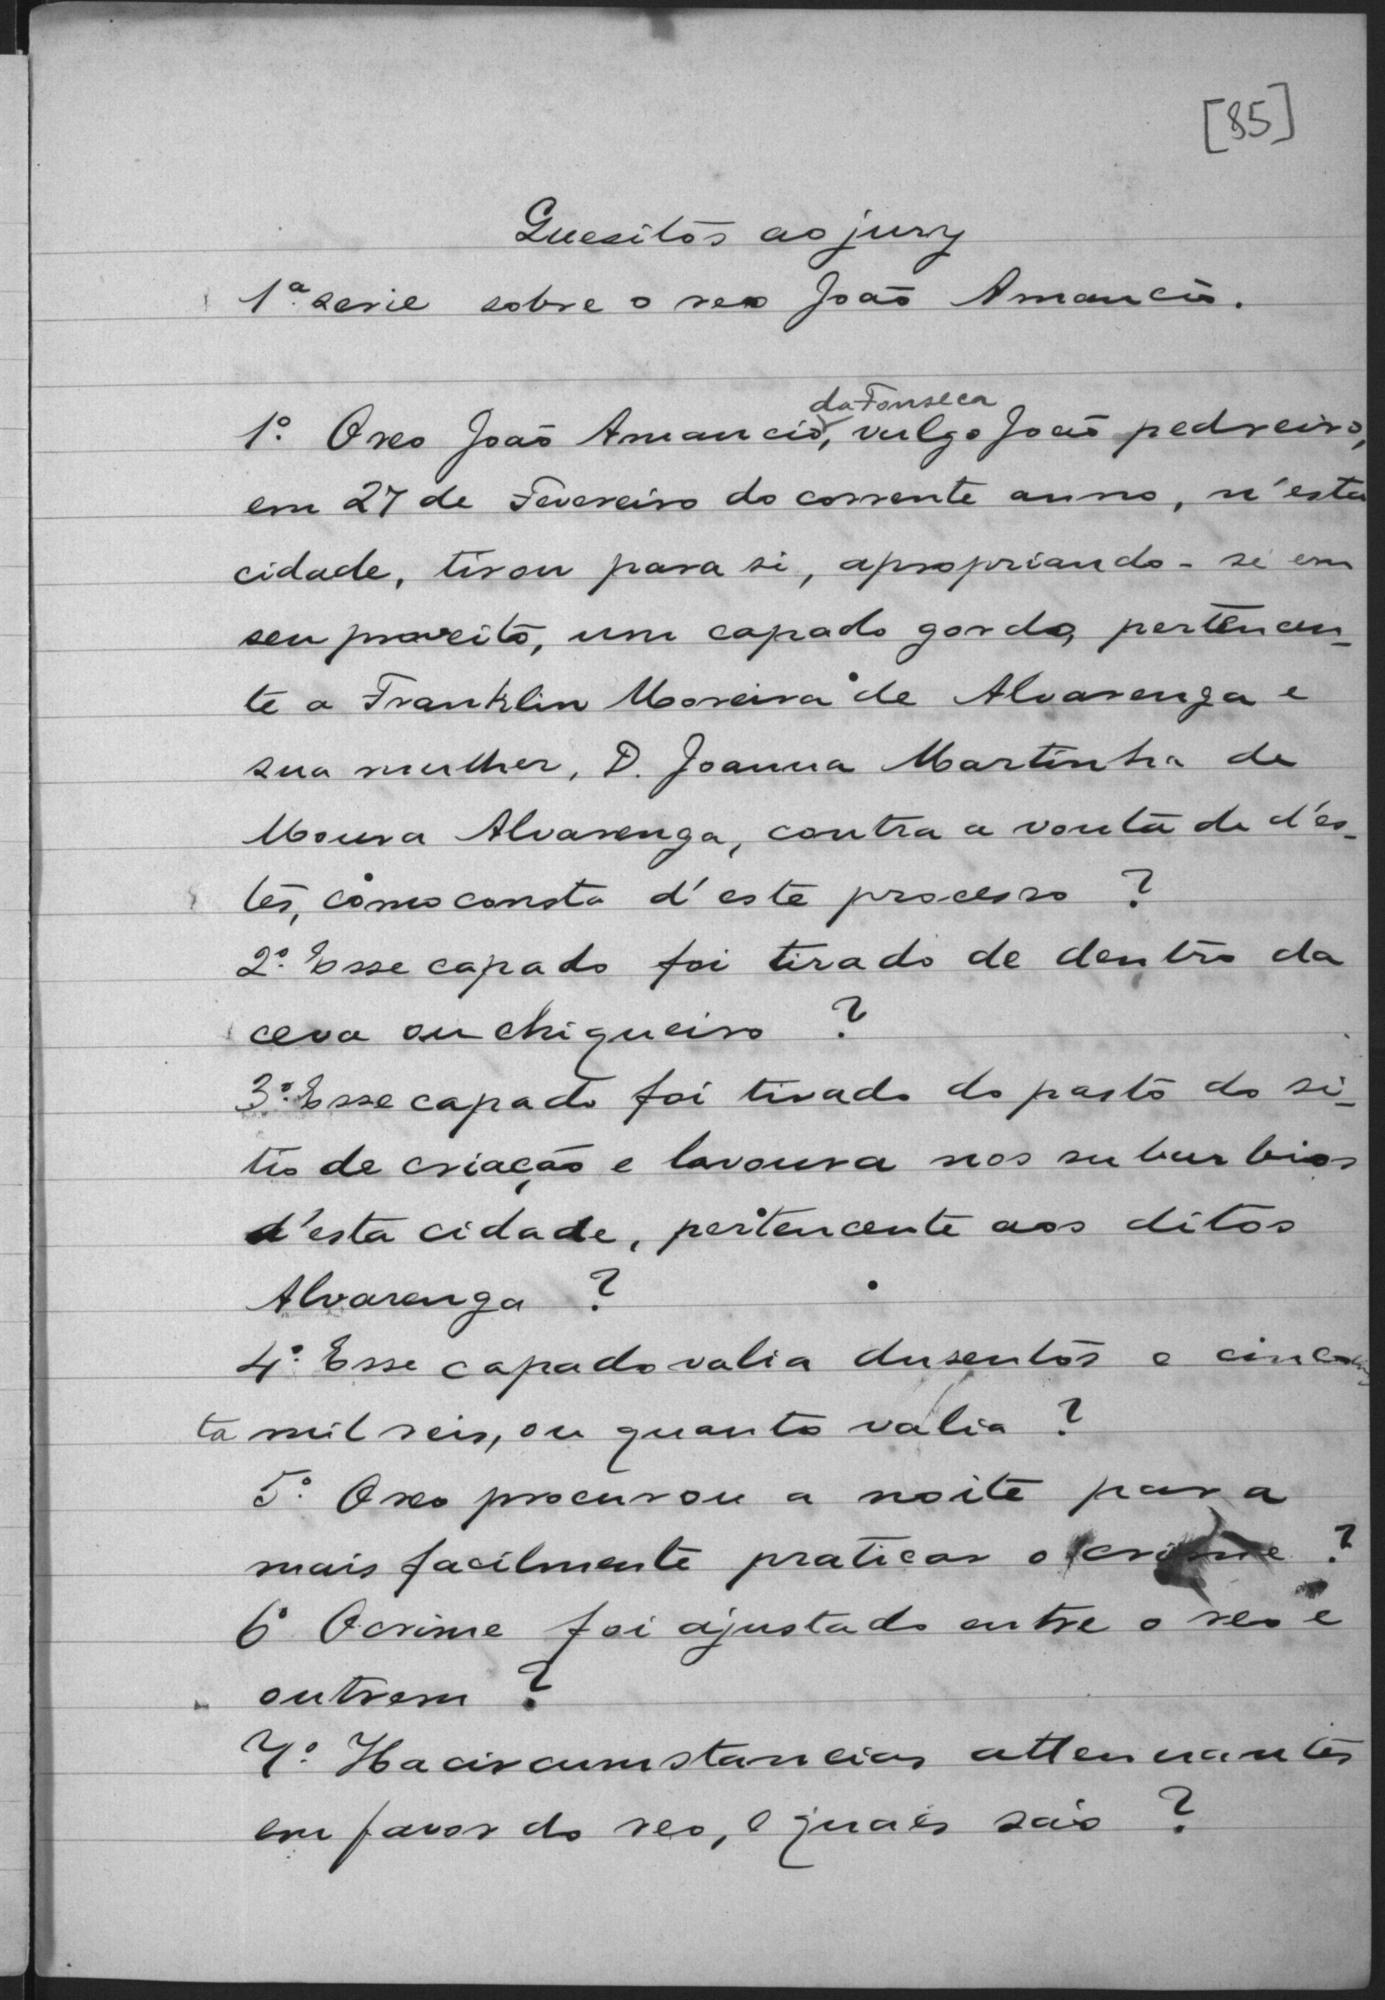 [85]
Quesitos ao jury
1ª serie sobre o reo João Amancio.
da Fonseca
1º O reo João Amancio, vulgo João pedreiro,
em 27 de Fevereiro do corrente anno, n'esta
cidade, tirou para si, apropriando-se em
seu proveito, um capado gordo, pertencen-
te a Franklin Moreira de Alvarenga e
sua mulher, D. Joanna Martinha de
Moura Alvarenga, contra a vontade d'es-
tes, como consta d'este processo ?
2º Esse capado foi tirado de dentro da
ceva ou chiqueiro ?
3º Esse capado foi tirado do pasto do si-
tio de criação e lavoura nos suburbios
d'esta cidade, pertencente aos ditos
Alvarenga ?
4º Esse capado valia dusentos e cincoen
ta mil reis, ou quanto valia ?
5º O reo procurou a noite para
mais facilmente praticar o crime ?
6º O crime foi ajustado entre o reo e
outrem ?
7º Ha circumstancias attenuantes
em favor do reo, e quaes são ?